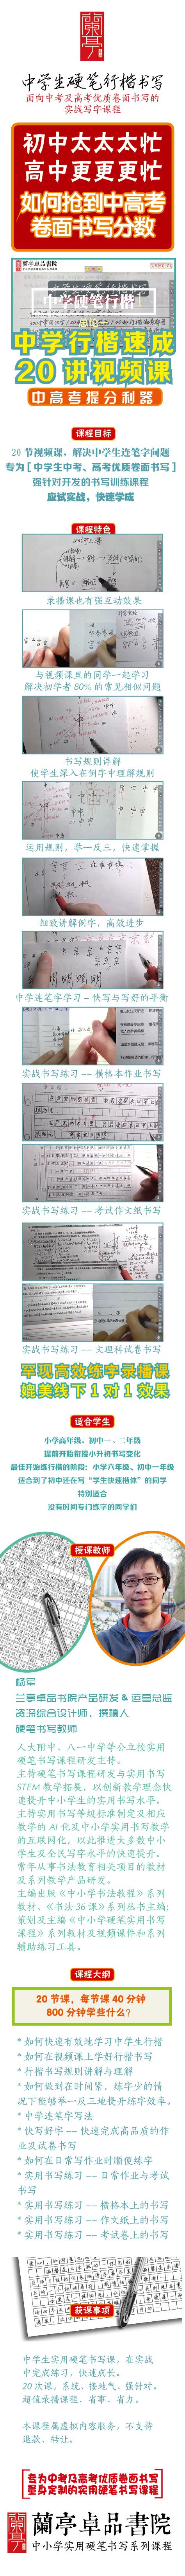 蘭亭
中学生硬笔行楷书写
面向中考及高考优质卷面书写的
实战写字课程
初中太太太忙
高中更更更忙
如何抢到中高考
卷面书写分数
蘭亭卓品書院
中学行楷速成
20讲视频课
中高考提分利器
课程目标
20节视频课，解决中学生连笔字问题
专为【中学生中考、高考优质卷面书写】
强针对开发的书写训练课程
应试实战，快速学成
课程特色
录播课也有强互动效果
与视频课里的同学一起学习
解决初学者80%的常见相似问题
书写规则详解
使学生深入在例字中理解规则
运用规则，举一反三，快速掌握
细致讲解例字，高效进步
中学连笔字学习－快写与写好的平衡
实战书写练习——横格本作业书写
实战书写练习——考试作文纸书写
实战书写练习——文理科试卷书写
罕现高效练字录播课
媲美线下1对1效果
适合学生
小学高年级，初中一、二年级
提前开始衔接小升初书写变化
最佳开始练行楷的阶段：小学六年级、初中一年级
适合到了初中还在写“学生快速楷体”的同学
特别适合
没有时间专门练字的同学们
授课教师
杨军
兰亭卓品书院产品研发&运营总监
资深综合设计师，撰稿人
硬笔书写教师
人大附中、八一中学等公立校实用
硬笔书写课程研发主持。
主持硬笔书写课程研发与实用书写
STEM教学拓展，以创新教学理念快
速提升中小学生的实用书写水平。
主持实用书写等级标准制定及相应
教学的AI化及中小学实用书写教学
的互联网化，以此推进大多数中小
学生及全民写字水平的快速提升。
常年从事书法教育相关项目的教材
及系列教学产品研发。
主编出版《中小学书法教程》系列
教材、《书法36课》系列丛书主编；
策划及主编《中小学硬笔实用书写
课程》系列教材及视频课件和系列
辅助练习工具。
课程大纲
20节课，每节课40分钟
800分钟学些什么？
*如何快速有效地学习中学生行楷
*如何在视频课上学好行楷书写
*行楷书写规则讲解与理解
*如何做到在时间紧，练字少的情
况下能够举一反三地提升练字效率。
*中学连笔字写法
*快写好字——快速完成高品质的作
业及试卷书写
*如何在日常写作业时顺便练字
*实用书写练习——日常作业与考试
书写
*实用书写练习——横格本上的书写
*实用书写练习——作文纸上的书写
*实用书写练习——考试卷上的书写
获课事项
中学生实用硬笔书写课，在实战
中完成练习，快速成长。
20次课，系统、接地气、强针对。
超值录播课程、省事、省力。
本课程属虚拟内容服务，不支持
退款、转让。
专为中考及高考优质卷面书写
量身定制的实用硬笔书写课程
蘭亭
蘭亭卓品書院
中小学实用硬笔书写系列课程